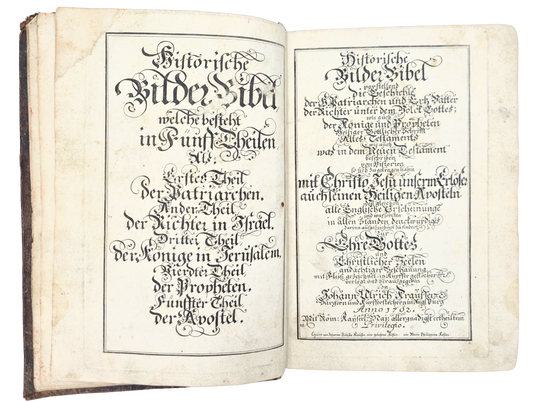 Historische
Bilder Bibel
welche besteht
in Fünff Theilen
Als:
Erstes Theil
der Patriarchen.
Ander Theil
der Richter in Israel.
Dritter Theil
der Könige in Jerusalem.
Vierdter Theil
der Propheten.
Fünffter Theil
der Apostel.
Historische
Bilder Bibel
vorstellend
Die Geschichte
der H. Patriarchen und Ertz Vätter
der Richter unter dem Volck Gottes;
wie auch
der Könige und Propheten
Heiliger Göttlicher Schrifft
Altes Testaments
wie auch
was in dem Neuen Testament
von Historien
mit Christo Jesu unserm Erlöser
auch seinen Heiligen Aposteln
alle Englische Erscheinunge
in allen Ständen
zur
Ehre Gottes
und
Christlicher Seelen
andächtiger Beschauung
mit Fleiß gezeichnet, in Kupffer
verlegt und herausgegeben
von
Johann Ulrich Kraußen
Burgern und Kupfferstechern in Augspurg
Anno 1702.
Mit Röm: Kayserl. May: allergnädigst ertheiltem
Privilegio.